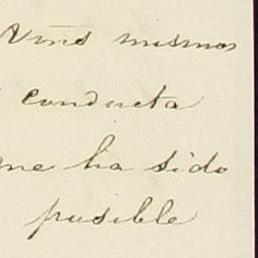 Vms mismos
conducta
me ha sido
pusible